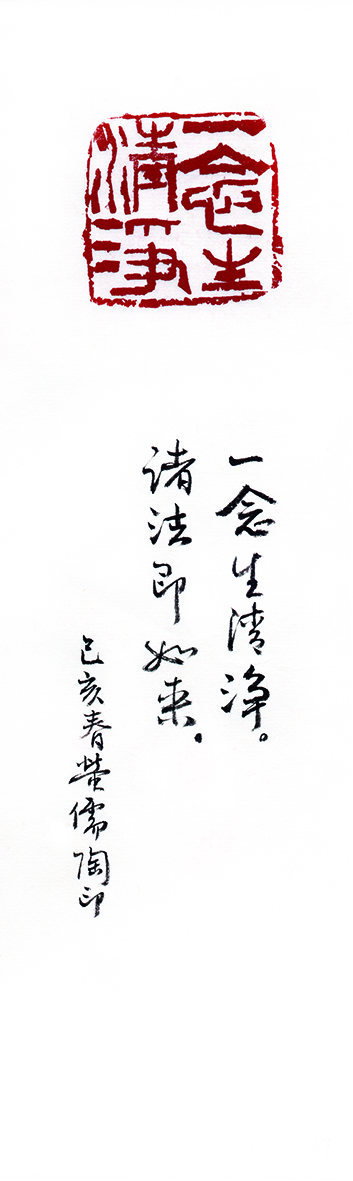 一念生
清淨
一念生清净。
诸法即如来。
己亥春莹儒陶印